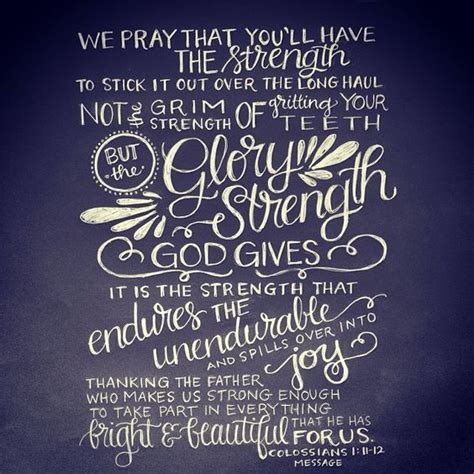 WE PRAY THAT YOU'LL HAVE
THE Strength
TO STICK IT OUT OVER THE LONG HAUL
NOT the GRIM STRENGTH OF gritting YOUR TEETH
BUT the Glory Strength
GOD GIVES
IT IS THE STRENGTH THAT
endures THE
unendurable
AND SPILLS OVER INTO
joy
THANKING THE FATHER
WHO MAKES US STRONG ENOUGH
TO TAKE PART IN EVERYTHING
bright & beautiful THAT HE HAS FOR US.
COLOSSIANS 1:11-12
MESSAGE